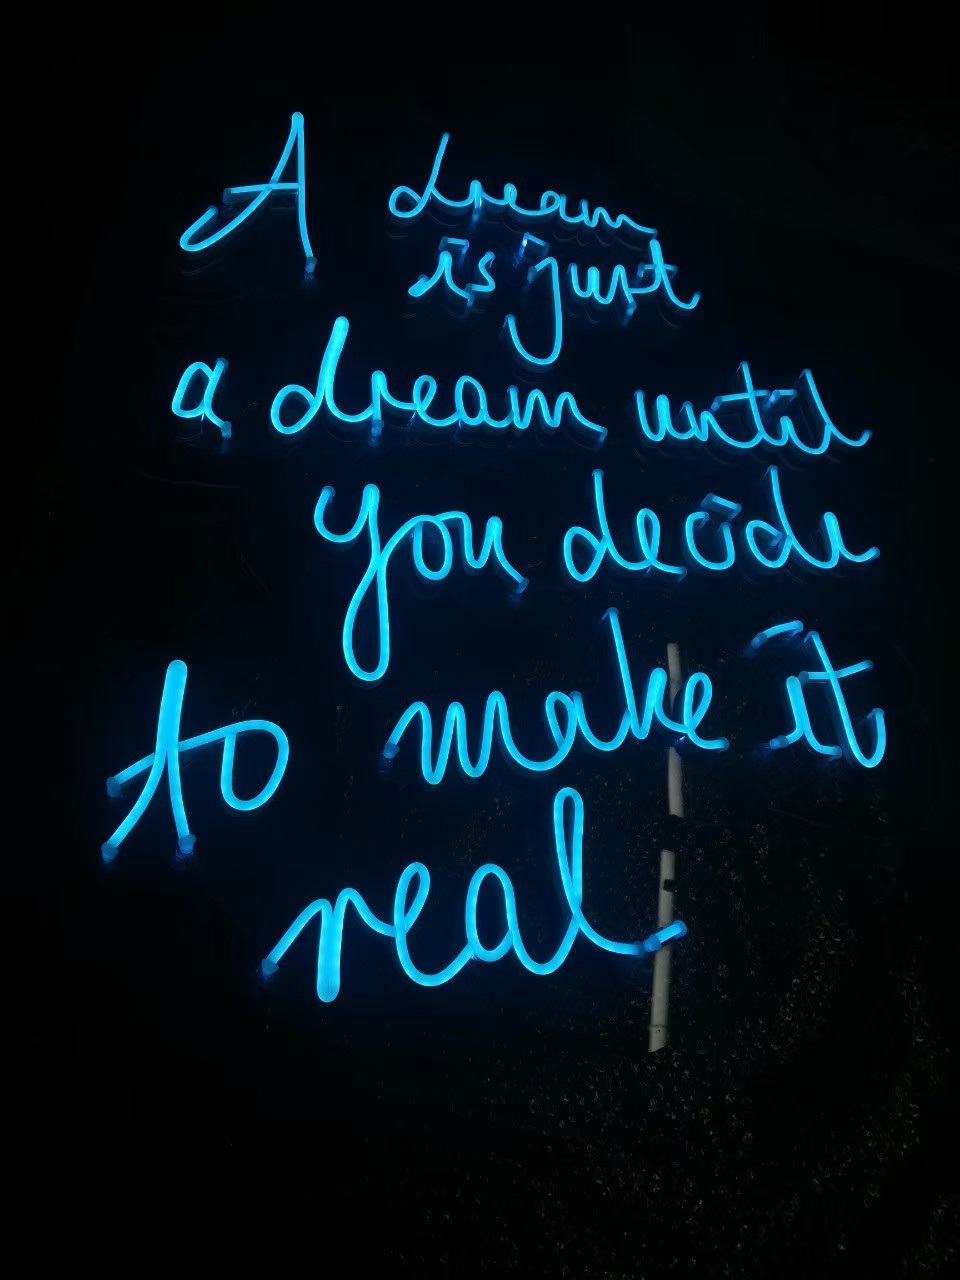 A dream
is just
a dream until
you decide
to make it
real